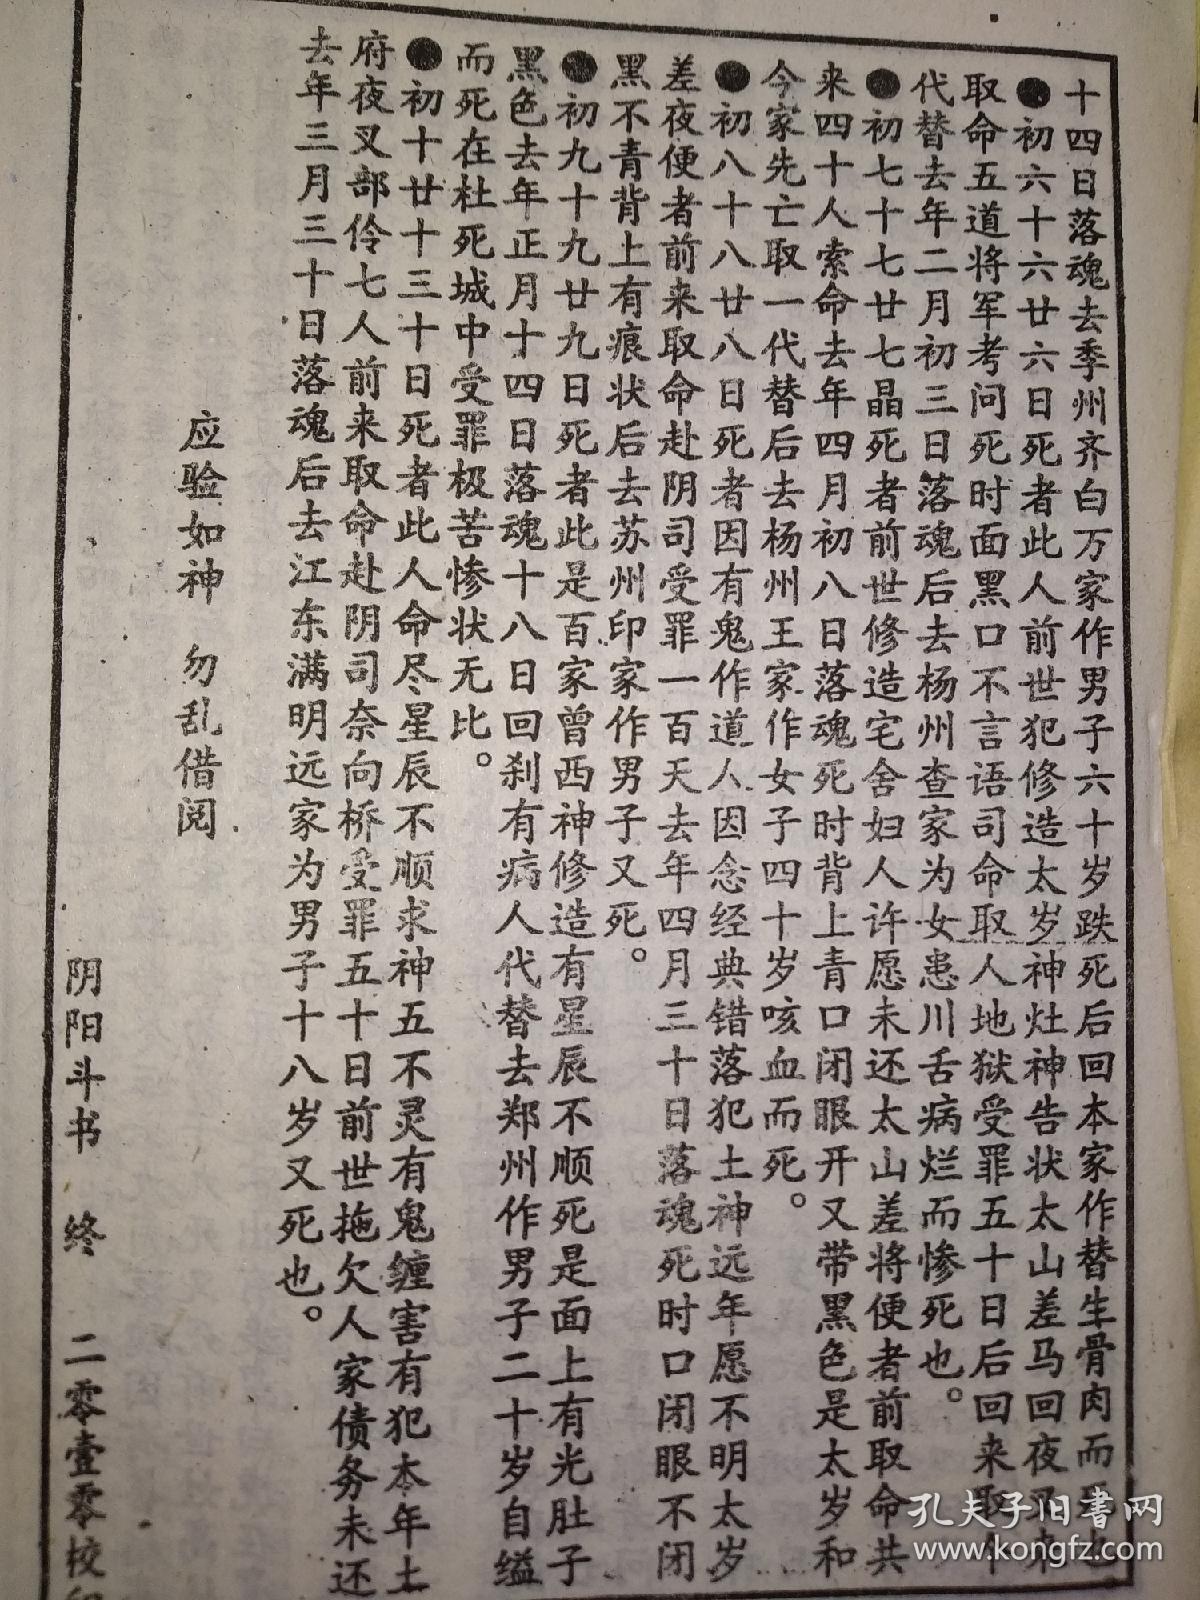 十四日落魂去季州齐白万家作男子六十岁跌死后回本家作替生骨肉而死也
●初六十六廿六日死者此人前世犯修造太岁神灶神告状太山差马回夜叉来
取命五道将军考问死时面黑口不言语司命取人地狱受罪五十日后回来取个
代替去年二月初三日落魂后去杨州查家为女患川舌病烂而惨死也。
●初七十七廿七晶死者前世修造宅舍妇人许愿未还太山差将便者前取命共
来四十人索命去年四月初八日落魂死时背上青口闭眼开又带黑色是太岁和
今家先亡取一代替后去杨州王家作女子四十岁咳血而死。
●初八十八廿八日死者因有鬼作道人因念经典错落犯土神远年愿不明太岁
差夜便者前来取命赴阴司受罪一百天去年四月三十日落魂死时口闭眼不闭
黑不青背上有痕状后去苏州印家作男子又死。
●初九十九廿九日死者此是百家曾西神修造有星辰不顺死是面上有光肚子
黑色去年正月十四日落魂十八日回刹有病人代替去郑州作男子二十岁自缢
而死在杜死城中受罪极苦惨状无比。
●初十廿十三十日死者此人命尽星辰不顺求神五不灵有鬼缠害有犯本年土
府夜叉部伶七人前来取命赴阴司奈向桥受罪五十日前世拖欠人家债务未还
去年三月三十日落魂后去江东满明远家为男子十八岁又死也。
应验如神 勿乱借阅
阴阳斗书 终 二零壹零校
孔夫子旧书网
www.kongfz.com